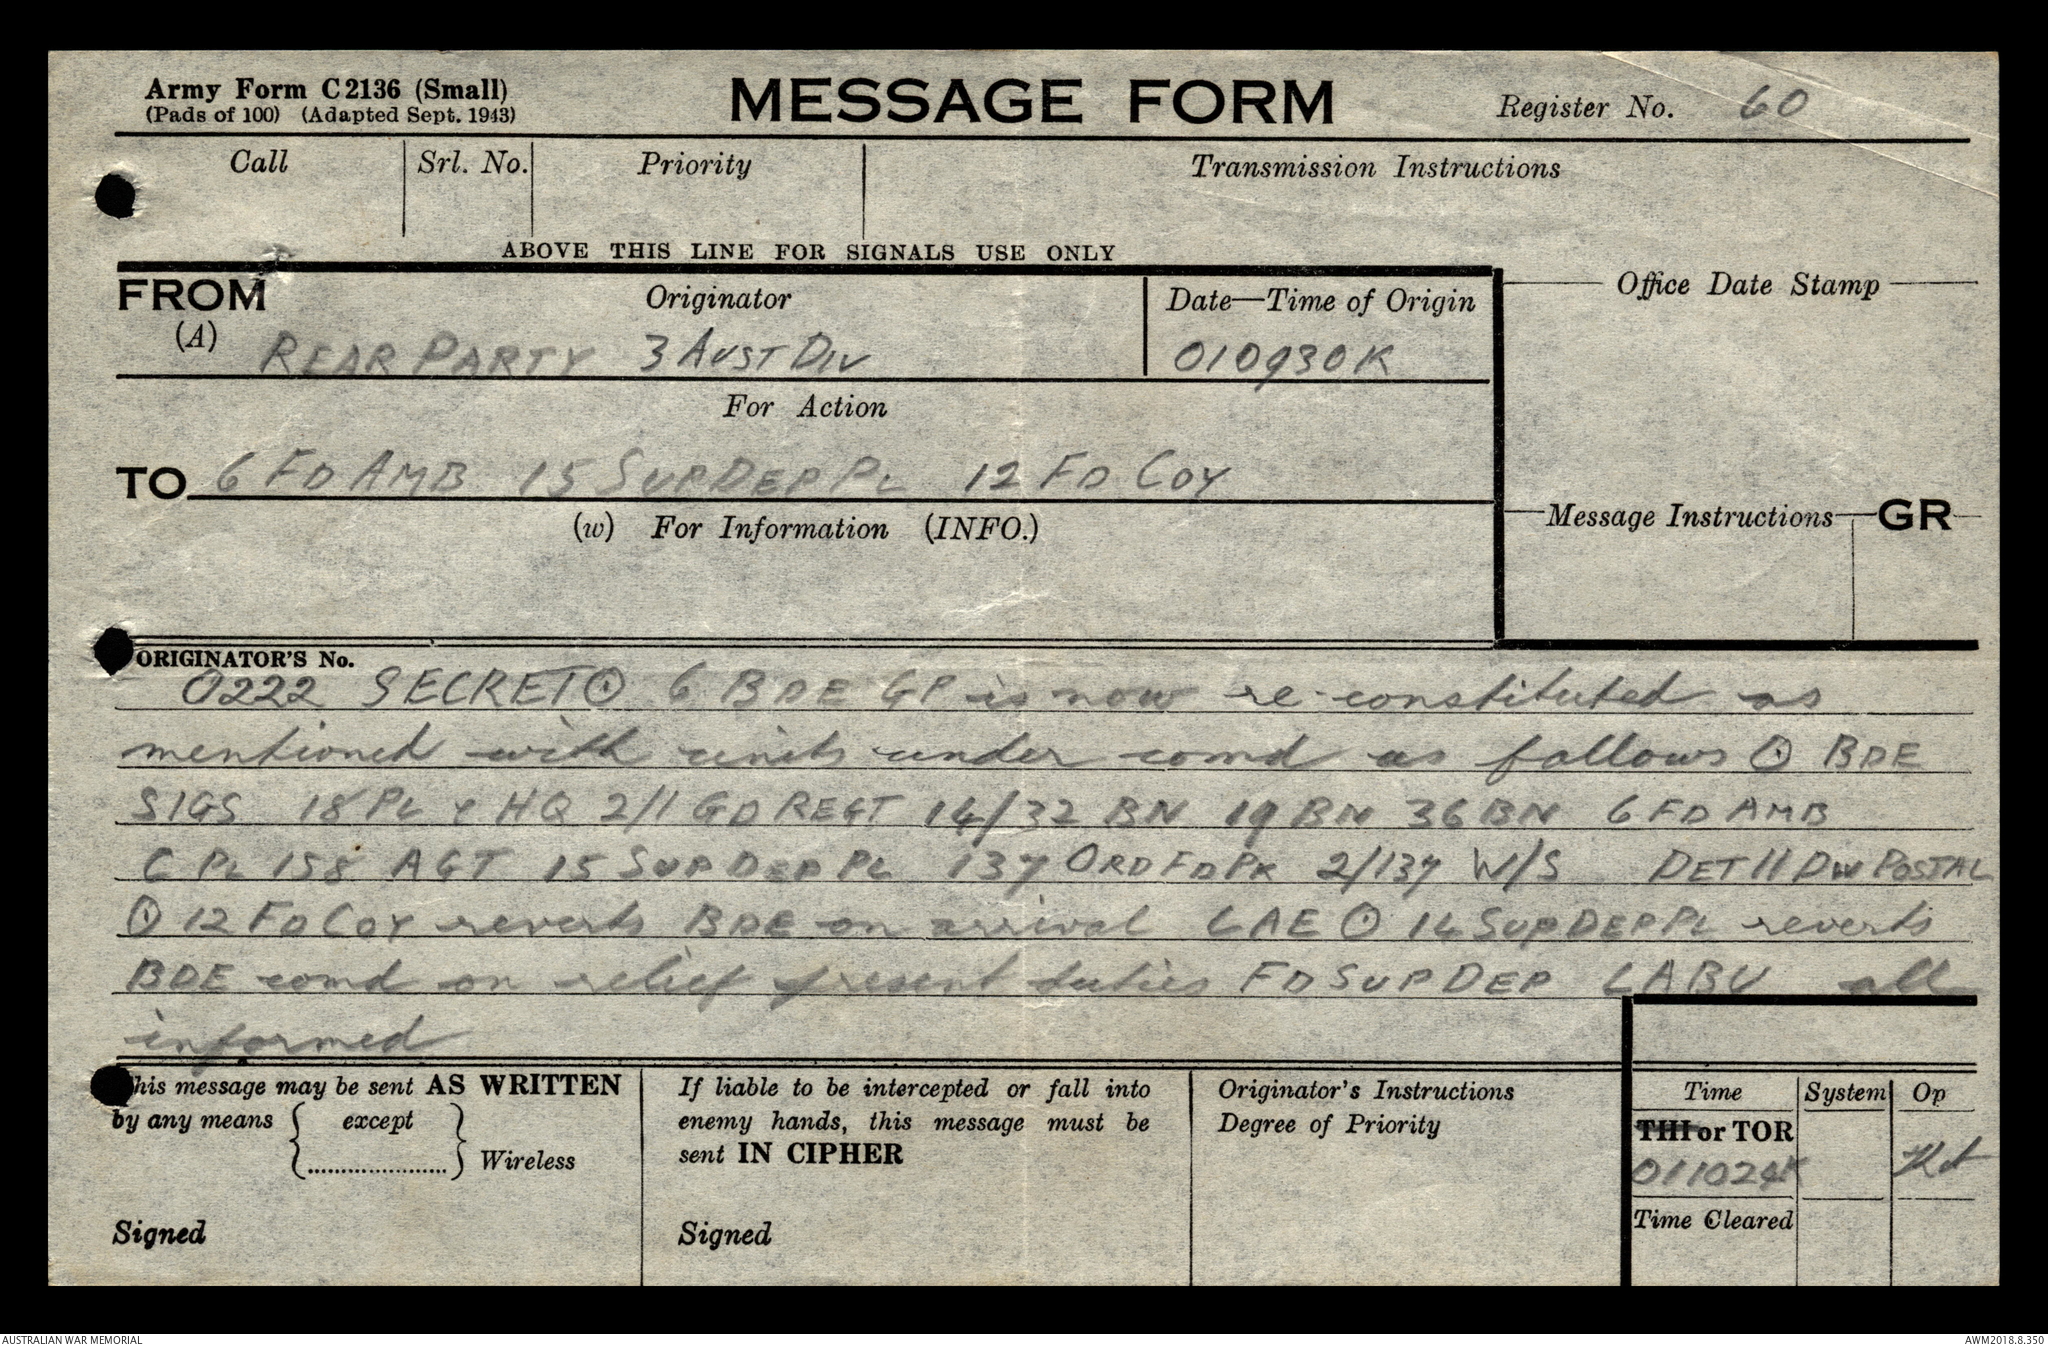 Army Form C2136 (Small)
(Pads of 100) (Adapted Sept. 1943)
MESSAGE FORM
Register No. 60
Call
Srl. No.
Priority
Transmission Instructions
ABOVE THIS LINE FOR SIGNALS USE ONLY
FROM
(A)
Originator
REAR PARTY 3 AUST DIV
Date—Time of Origin
010930K
Office Date Stamp
For Action
TO 6 FD AMB 15 SUP DEP PL 12 FD COY
(w) For Information (INFO.)
Message Instructions GR
ORIGINATOR'S No.
O222 SECRET ⊙ 6 BDE GP is now re-constituted as
mentioned with units under comd as follows ⊙ BDE
SIGS 18 PL Y HQ 2/1 GD REGT 14/32 BN 19 BN 36 BN 6 FD AMB
C PL 158 AGT 15 SUP DEP PL 137 ORD FD PK 2/137 W/S DET 11 DIV POSTAL
⊙ 12 FD COY reverts BDE on arrival LAE ⊙ 14 SUP DEP PL reverts
BDE comd on relief present duties FD SUP DEP LABU all
informed
This message may be sent AS WRITTEN
by any means { except
.....................} Wireless
Signed
If liable to be intercepted or fall into
enemy hands, this message must be
sent IN CIPHER
Signed
Originator's Instructions
Degree of Priority
Time
System
Op
THI or TOR
011024K
Time Cleared
AUSTRALIAN WAR MEMORIAL
AWM2018.8.350